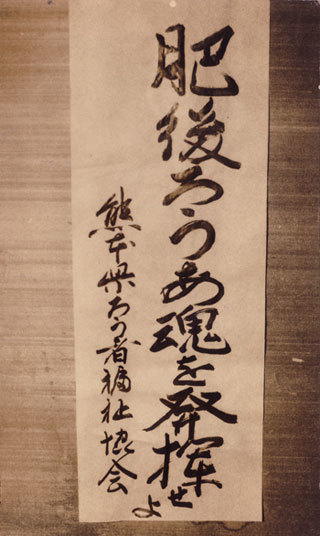 肥後ろうあ魂を発揮せよ
熊本県ろう者福祉協会